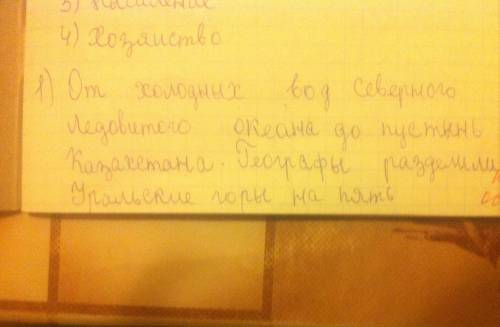 3) Население
4) Хозяиство
1) От холодных вод Северного
Ледовитого океана до пустынь
Казахстана. Географы разделили
Уральские горы на пять